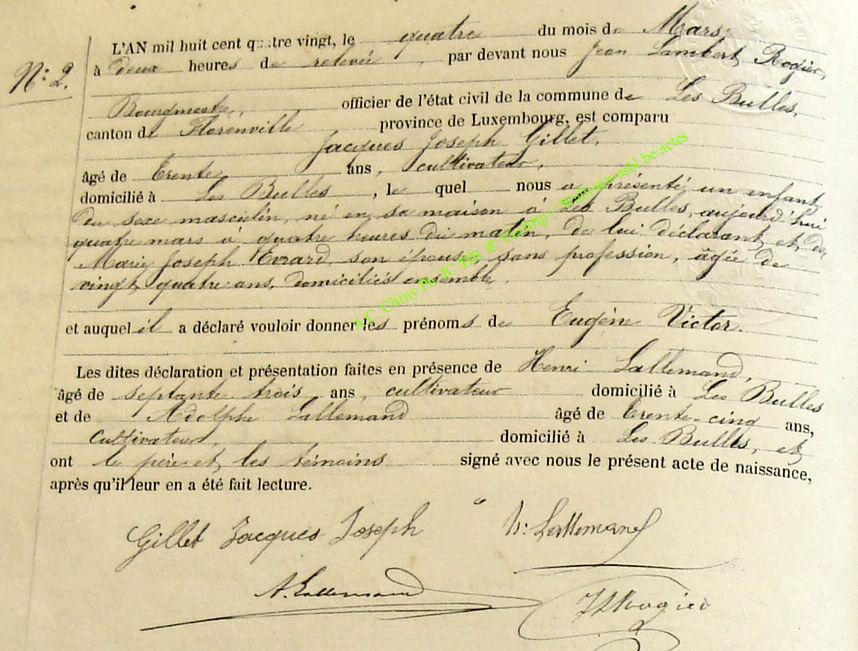 L'AN mil huit cent quatre vingt, le quatre du mois de Mars
N° 2. à deux heures de relevée, par devant nous Jean Lambert Rogier,
Bourgmestre, officier de l'état civil de la commune de Les Bulles,
canton de Florenville province de Luxembourg, est comparu
Jacques Joseph Gillet,
âgé de trente ans, cultivateur,
domicilié à Les Bulles, le quel nous a présenté un enfant
du sexe masculin, né en sa maison à Les Bulles, aujourd'hui
quatre mars à quatre heures du matin, de lui déclarant et de
Marie Joseph Evrard, son épouse, sans profession, âgée de
vingt quatre ans, domiciliés ensemble.
et auquel il a déclaré vouloir donner les prénoms de Eugène Victor.
Les dites déclaration et présentation faites en présence de Henri Lallemand,
âgé de septante trois ans, cultivateur domicilié à Les Bulles
et de Adolphe Lallemand âgé de trente cinq ans,
cultivateur, domicilié à Les Bulles, et
ont le père et les témoins signé avec nous le présent acte de naissance,
après qu'il leur en a été fait lecture.
Gillet Jacques Joseph h: Lallemand
A. Lallemand JLRogier